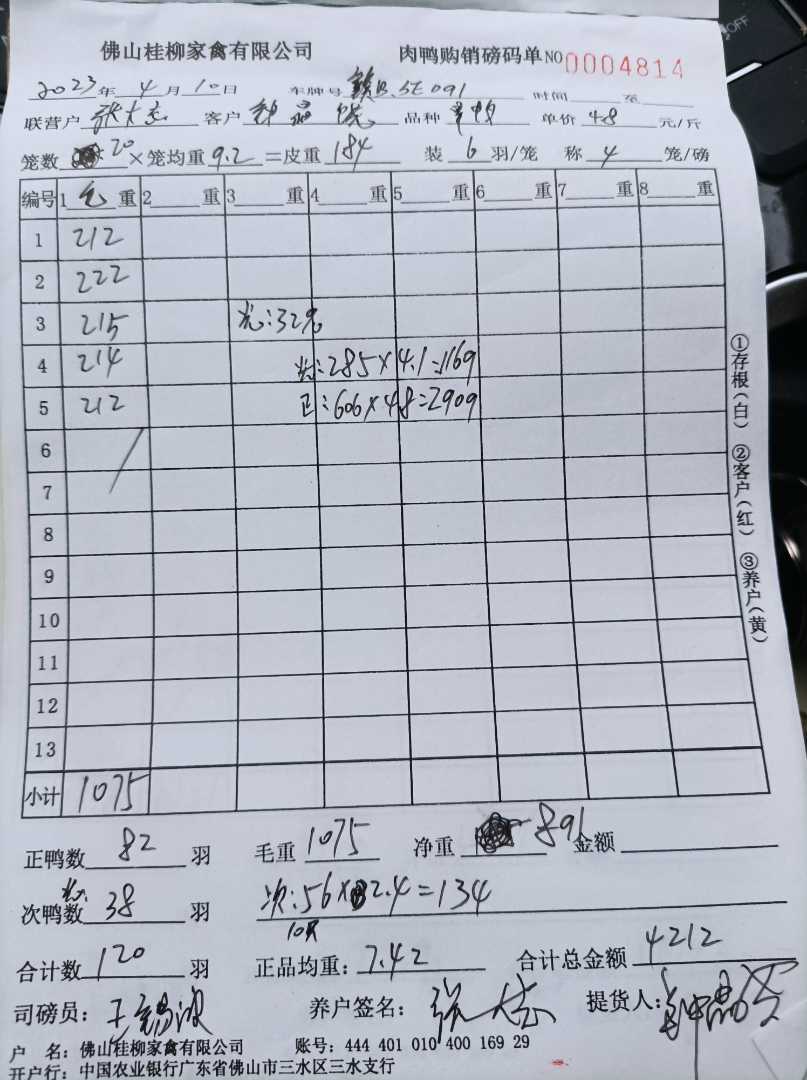 佛山桂柳家禽有限公司 肉鸭购销磅码单 NO 0004814
2023年 4 月 10 日 车牌号 5E091 时间 至
联营户 张大志 客户 钟 品种 单价 4.8 元/斤
笼数 20 ×笼均重 9.2 =皮重 184 装 6 羽/笼 称 4 笼/磅
编号 1 毛 重 2 重 3 重 4 重 5 重 6 重 7 重 8 重
1 212
2 222
3 215 光:32%
4 214 光:285×4.1=1169
5 212 正:606×4.8=2909
6
7
8
9
10
11
12
13
小计 1075
①存根(白) ②客户(红) ③养户(黄)
正鸭数 82 羽 毛重 1075 净重 891 金额
光:
次鸭数 38 羽 次:56×2.4=134
10只
合计数 120 羽 正品均重: 7.42 合计总金额 4212
司磅员: 王锡波 养户签名: 张大志 提货人: 钟
户 名: 佛山桂柳家禽有限公司 账号: 444 401 010 400 169 29
开户行: 中国农业银行广东省佛山市三水区三水支行
OFF